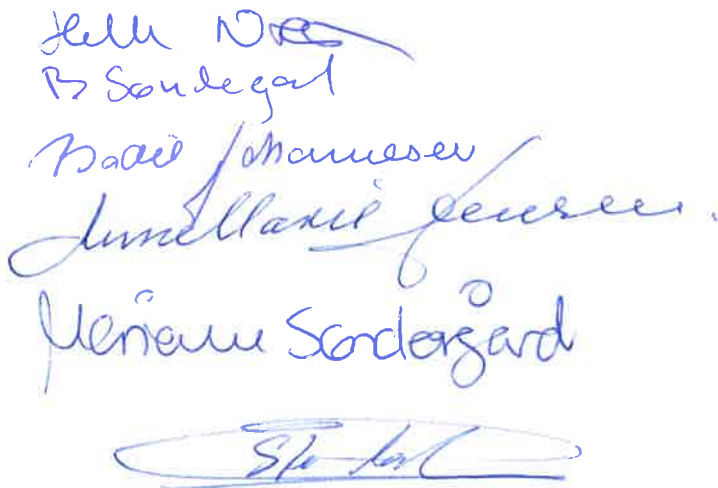 Helle
B Søndegard
Bodil Johannesen
Anne Marie Jensen.
Mariann Søndergård